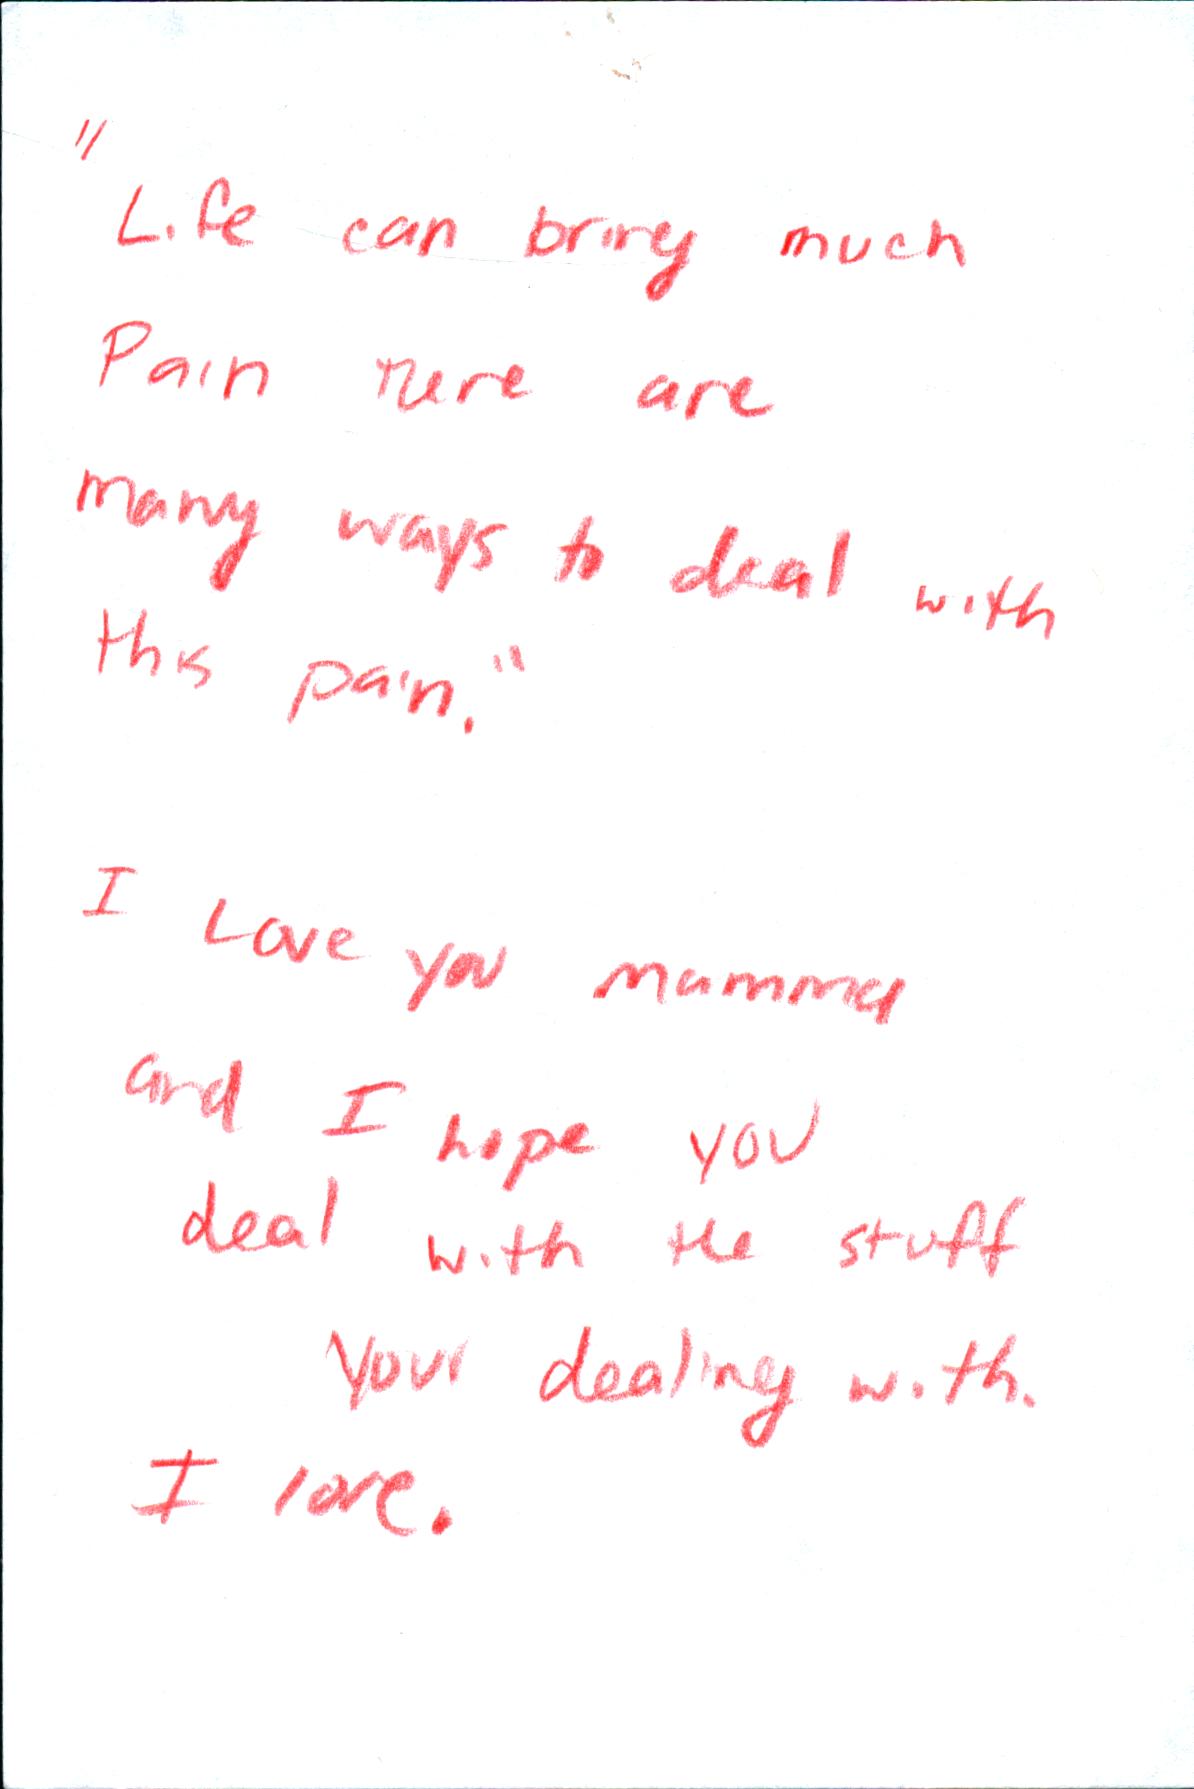 "
Life can bring much
Pain There are
many ways to deal with
this pain."
I Love you mamma
and I hope you
deal with the stuff
your dealing with.
I love.